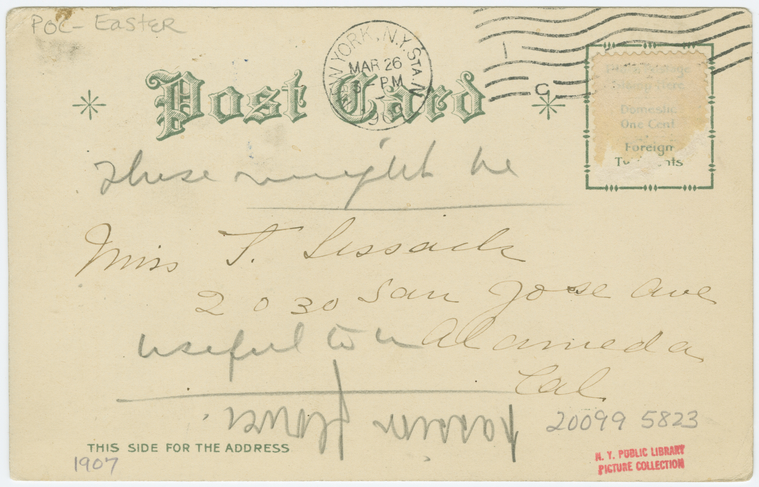 POC - Easter
Post Card
NEW YORK, N.Y. STA. N
MAR 26
PM
Domestic
One Cent
Foreign
These might be
Miss T. Lissack
2030 San Jose Ave
useful to u
Alameda
Cal
passion flower
20099 5823
THIS SIDE FOR THE ADDRESS
1907
N. Y. PUBLIC LIBRARY
PICTURE COLLECTION